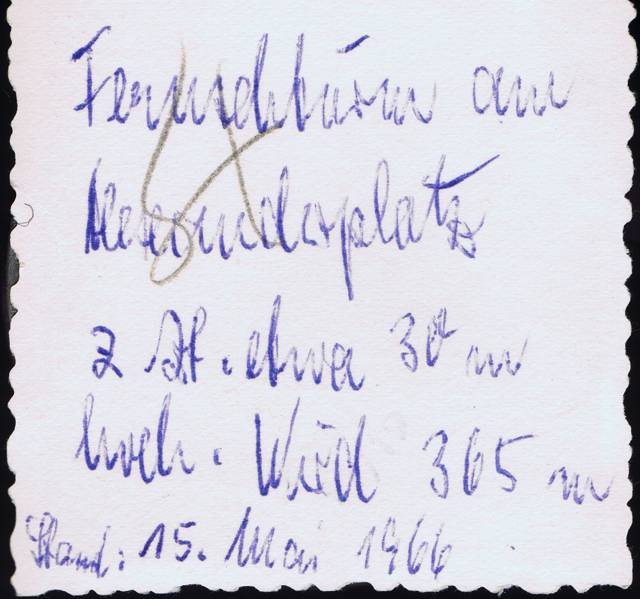 Fernsehturm am
Alexanderplatz
z Zt. etwa 30 m
hoch. Wird 365 m
Stand: 15. Mai 1966